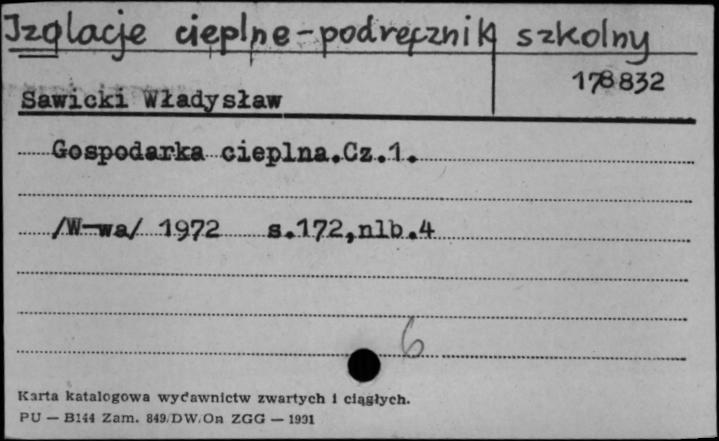 Izolacje cieplne - podręcznik szkolny
178832
Sawicki Władysław
Gospodarka cieplna.Cz.1.
/W-wa/ 1972 s.172,nlb.4
6
Karta katalogowa wydawnictw zwartych i ciągłych.
PU — B144 Zam. 849/DW/On ZGG — 1991